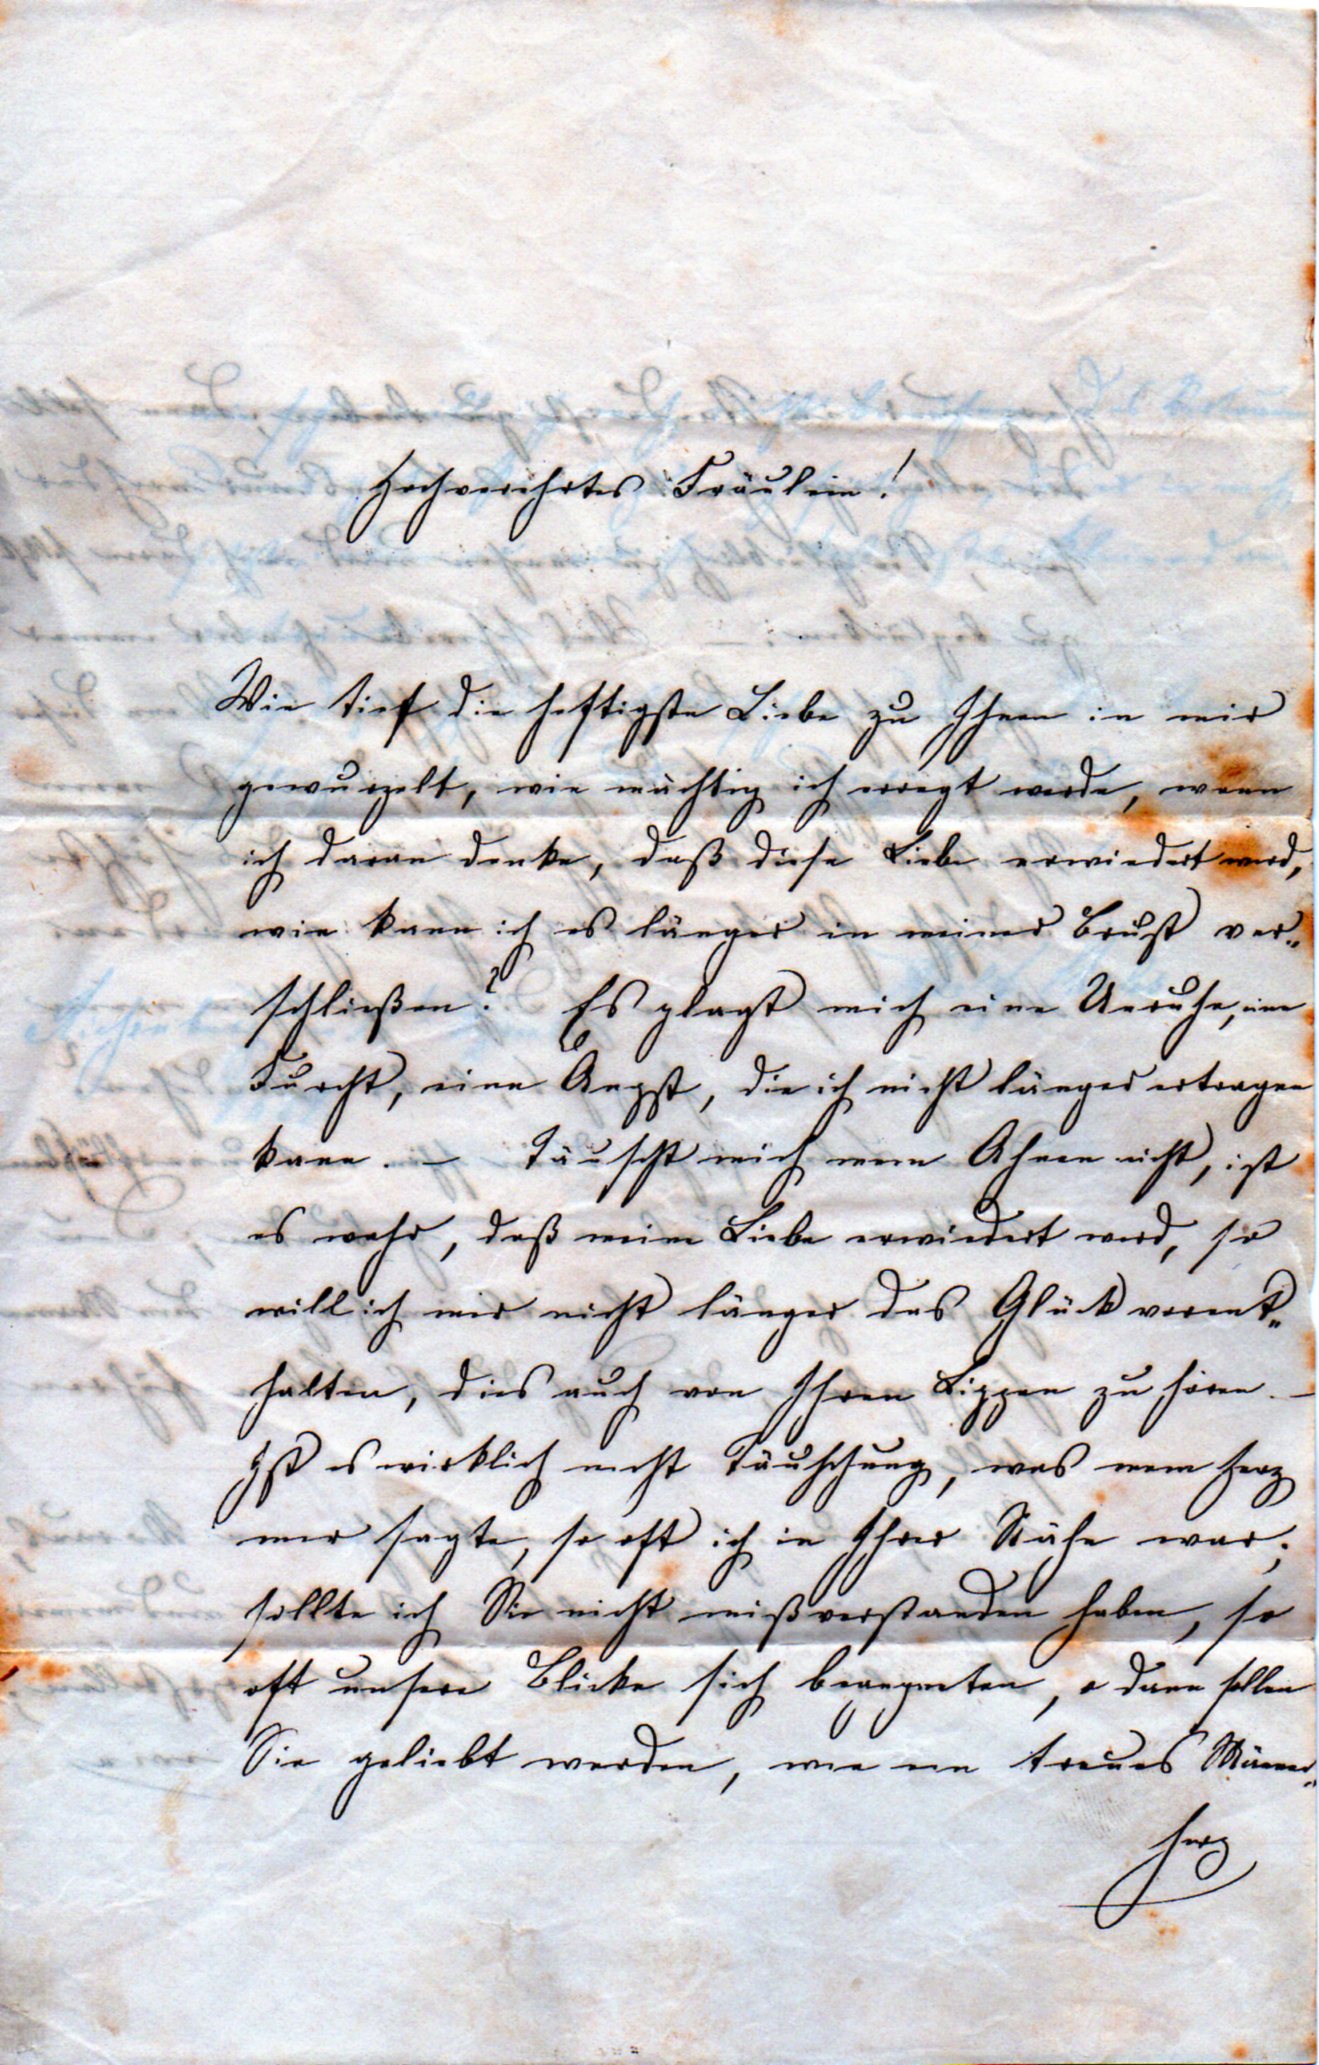 Hochverehrtes Fräulein!
Wie tief die heftigste Liebe zu Ihnen in mir
gewurzelt, wie mächtig ich erregt werde, wenn
ich daran denke, daß diese Liebe erwiedert wird,
wie kann ich es länger in meiner Brust ver„
schließen? Es plagt mich eine Unruhe, eine
Furcht, eine Angst, die ich nicht länger ertragen
kann. – Täuscht mich mein Ahnen nicht, ist
es wahr, daß meine Liebe erwiedert wird, so
will ich mir nicht länger das Glück vorent„
halten, dies auch von Ihren Lippen zu hören. –
Ist es wirklich nicht Täuschung, was mein Herz
mir sagte, so oft ich in Ihrer Nähe war;
sollte ich Sie nicht mißverstanden haben, so
oft unsere Blicke sich begegneten, o dann sollen
Sie geliebt werden, wie ein treues Männer„
herz